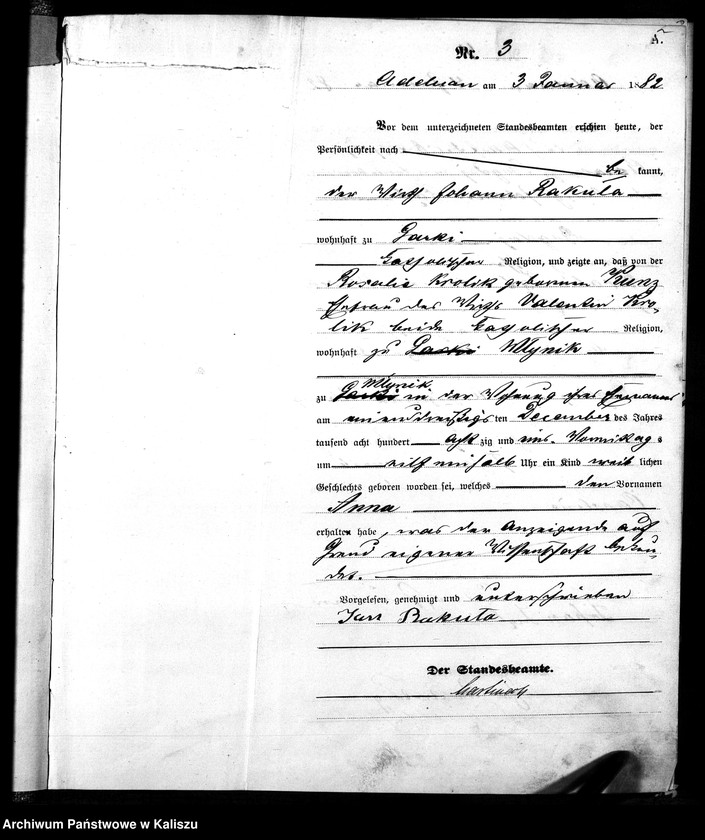 A.
Nr. 3
Adelnau am 3 Januar 1882
Vor dem unterzeichneten Standesbeamten erschien heute, der
Persönlichkeit nach
be kannt,
der Wirth Johann Rakuta
wohnhaft zu Garki
katholischer Religion, und zeigte an, daß von der
Rosalie Krolik geborenen Kunz
Ehefrau des Wirths Valentin Kro-
lik beide katholischer Religion,
wohnhaft zu Garki Mlynik
Mlynik
zu Garki in der Wohnung ihres Ehemannes
am einunddreißigsten December des Jahres
tausend acht hundert acht zig und eins Vormittags
um eilf einhalb Uhr ein Kind weib lichen
Geschlechts geboren worden sei, welches den Vornamen
Anna
erhalten habe, was der Anzeigende auf
Grund eigener Wissenschaft bekun-
det.
Vorgelesen, genehmigt und unterschrieben
Jan Rakuta
Der Standesbeamte.
Archiwum Państwowe w Kaliszu